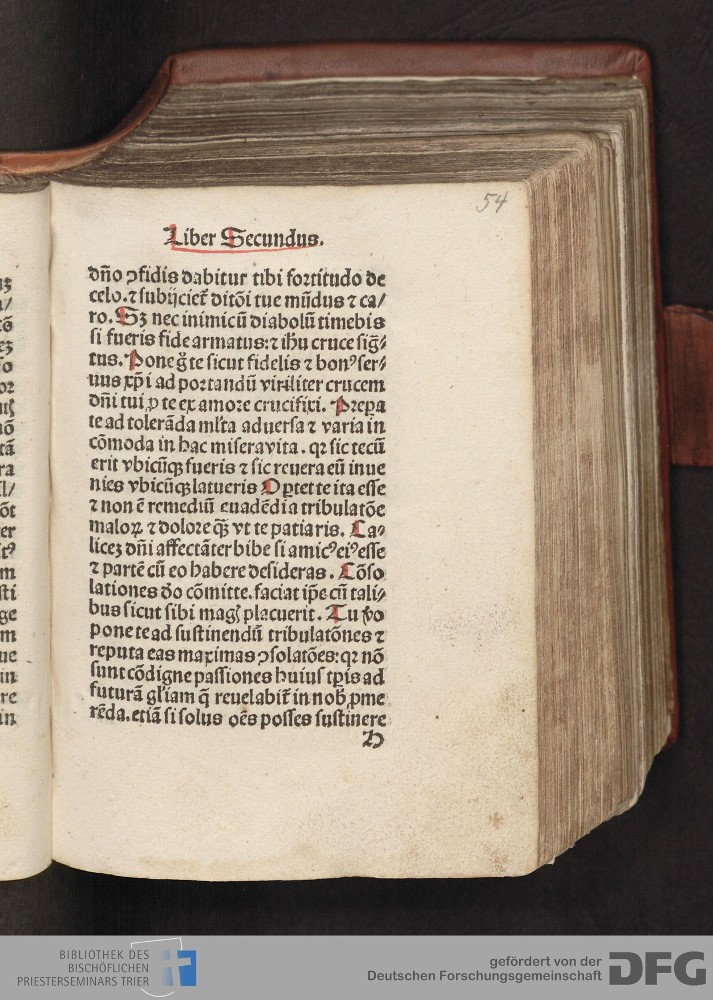 54
Liber Secundus.
dño ꝯfidis dabitur tibi fortitudo de
celo. ⁊ subijcieť ditõi tue mũdus ⁊ ca/
ro. Sꝫ nec inimicũ diabolũ timebis
si fueris fide armatus: ⁊ ihu cruce sig̃/
tus. Pone g̃ te sicut fidelis ⁊ bonꝰ ser/
uus xp̃i ad portandũ viriliter crucem
dñi tui ꝓ te ex amore crucifixi. Prepa
te ad tolerãda ml'ta aduersa ⁊ varia in
cõmoda in hac misera vita. qꝛ sic tecũ
erit vbicũqꝫ fueris ⁊ sic reuera eũ inue
nies vbicũqꝫ latueris Oꝑtet te ita esse
⁊ non ẽ remediũ euadẽdi a tribulatõe
maloꝝ ⁊ dolore qꝫ̃ vt te patiaris. Ca/
liceꝫ dñi affectãter bibe si amicꝰ eiꝰ esse
⁊ partẽ cũ eo habere desideras. Cõso
lationes d̃o cõmitte. faciat ip̃e cũ tali/
bus sicut sibi mag̃ placuerit. Tu v̊o
pone te ad sustinendũ tribulatões ⁊
reputa eas maximas ꝯsolatões: qꝛ nõ
sunt cõdigne passiones huius tꝑis ad
futurã gl'iam q̃ reuelabiť in nob̃ ꝓme
rẽda. etiã si solus oẽs posses sustinere
H
BIBLIOTHEK DES
BISCHÖFLICHEN
PRIESTERSEMINARS TRIER
gefördert von der
Deutschen Forschungsgemeinschaft
DFG